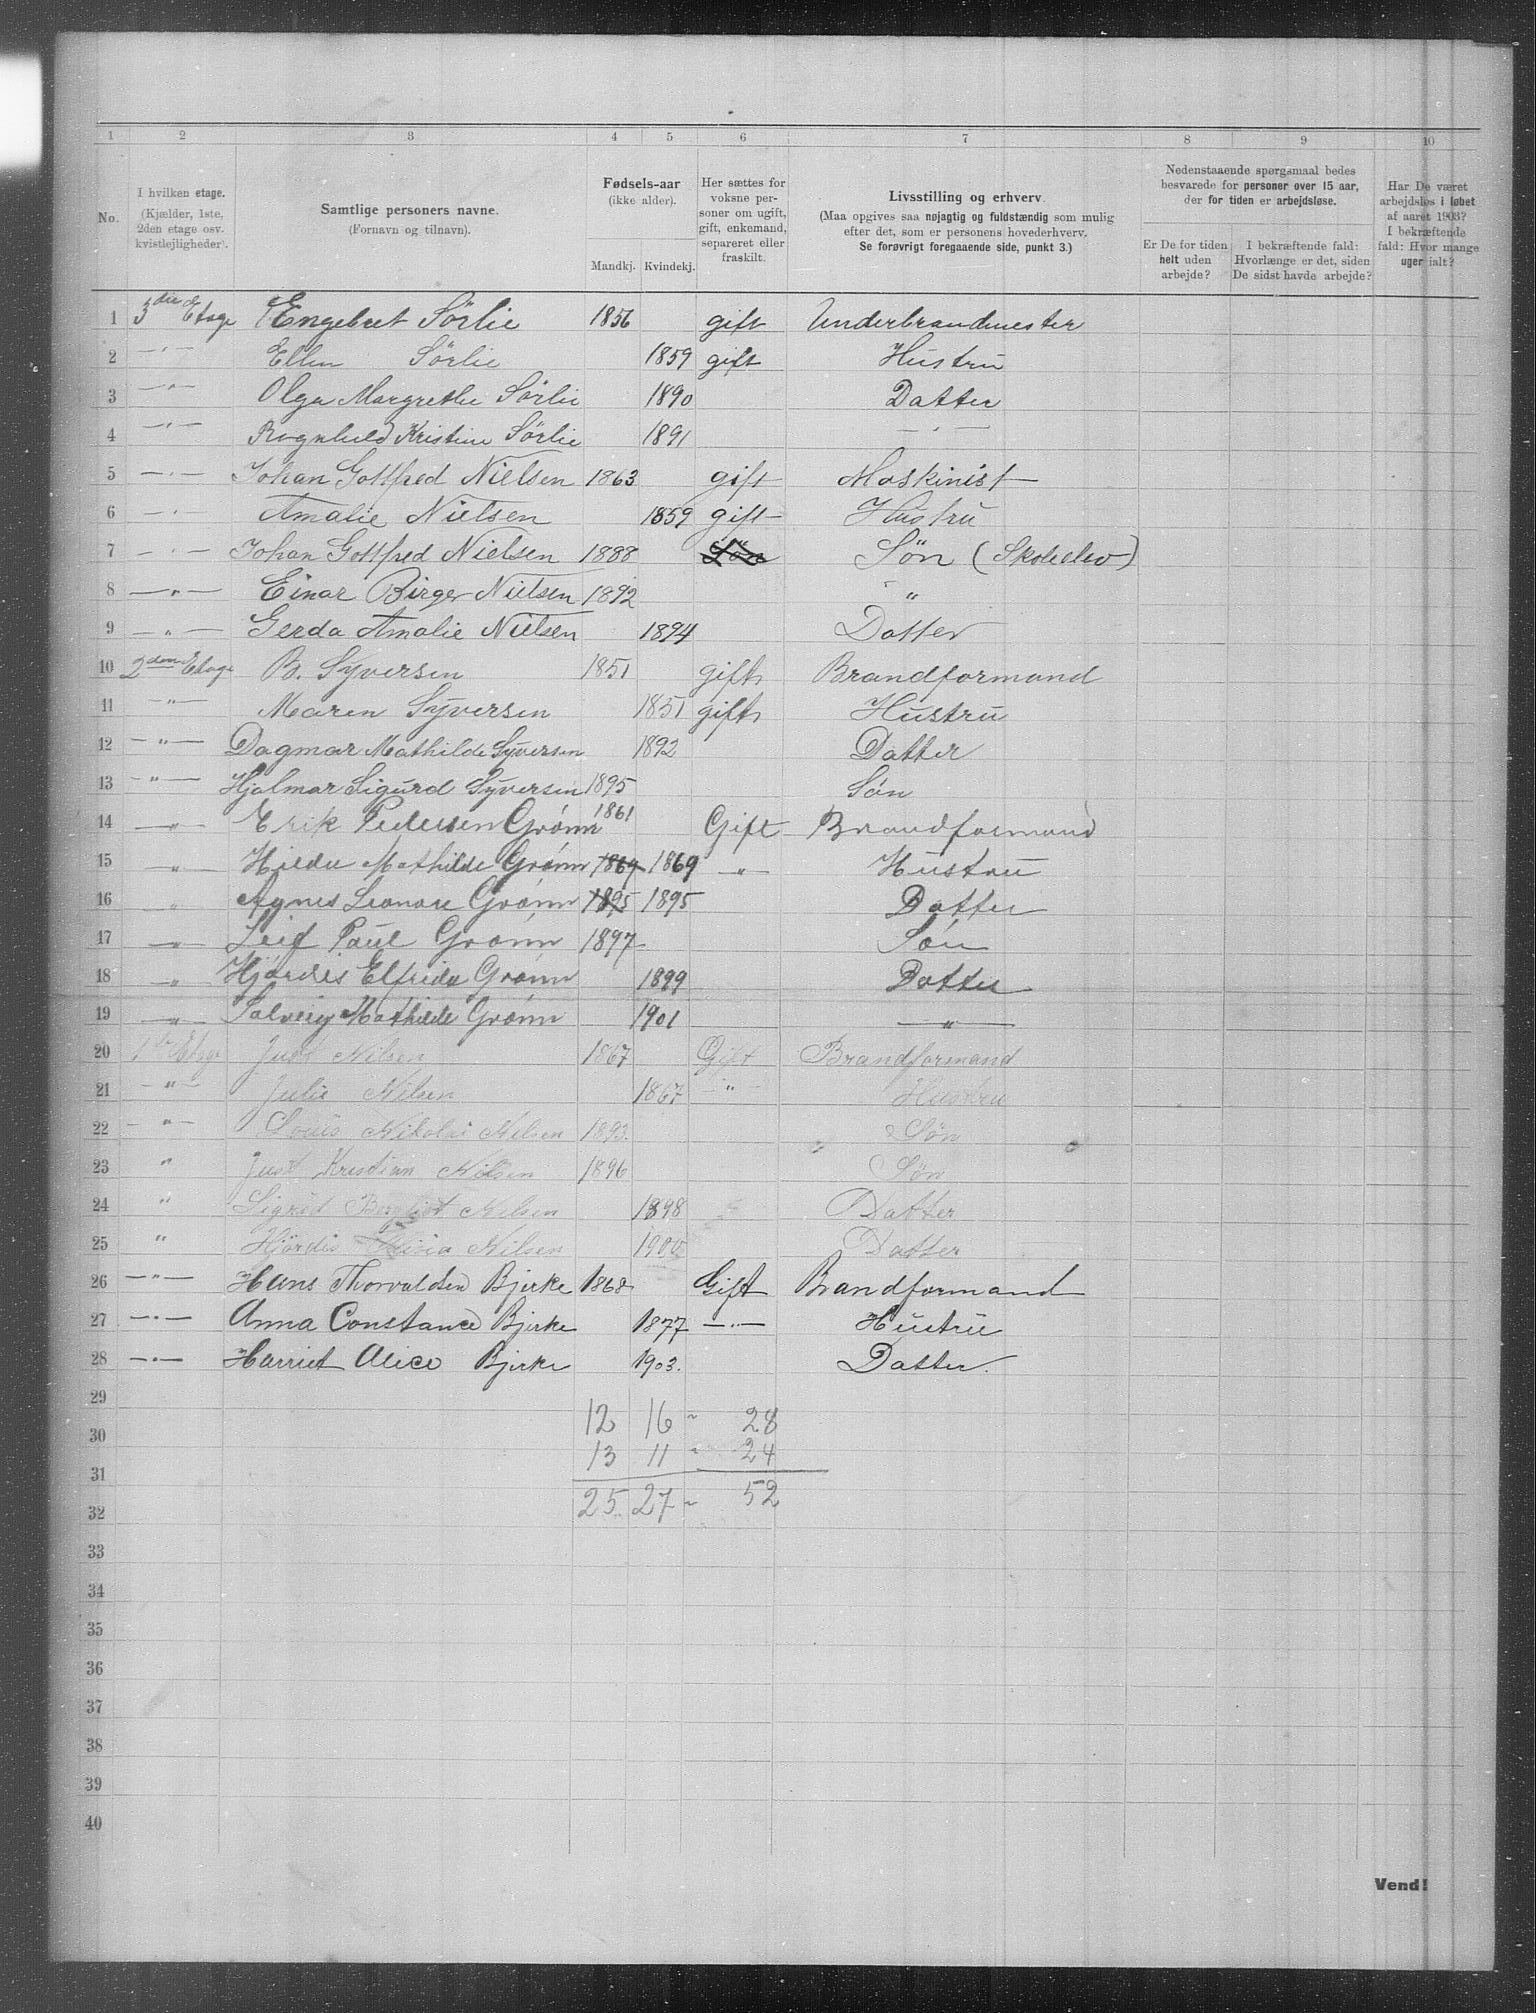 1 2 3 4 5 6 7 8 9 10
No.
I hvilken etage.
(Kjælder, 1ste,
2den etage osv.
kvistlejligheder).
Samtlige personers navne.
(Fornavn og tilnavn).
Fødsels-aar
(ikke alder).
Mandkj. Kvindekj.
Her sættes for
voksne per-
soner om ugift,
gift, enkemand,
separeret eller
fraskilt.
Livsstilling og erhverv.
(Maa opgives saa nøjagtig og fuldstændig som mulig
efter det, som er personens hovederhverv.
Se forøvrigt foregaaende side, punkt 3.)
Nedenstaaende spørgsmaal bedes
besvarede for personer over 15 aar,
der for tiden er arbejdsløse.
Er De for tiden
helt uden
arbejde?
I bekræftende fald:
Hvorlænge er det, siden
De sidst havde arbejde?
Har De været
arbejdsløs i løbet
af aaret 1903?
I bekræftende
fald: Hvor mange
uger ialt?
1 3die Etage Engebret Sörlie 1856 gift Underbrandmester
2 —"— Ellen Sörlie 1859 gift Hustru
3 —"— Olga Margrethe Sörlie 1890 Datter
4 —"— Ragnhild Kristine Sörlie 1891 —"—
5 —"— Johan Gottfred Nielsen 1863 gift Maskinist
6 —"— Amalie Nielsen 1859 gift Hustru
7 —"— Johan Gottfred Nielsen 1888 Sön Sön (Skoleelev)
8 —"— Einar Birger Nielsen 1892 "
9 —"— Gerda Amalie Nielsen 1894 Datter
10 2den Etage B. Syversen 1851 gift Brandformand
11 —"— Maren Syversen 1851 gift Hustru
12 —"— Dagmar Mathilde Syversen 1892 Datter
13 —"— Hjalmar Sigurd Syversen 1895 Sön
14 —"— Erik Pedersen Grönn 1861 Gift Brandformand
15 —"— Hilda Mathilde Grönn 1869 1869 —"— Hustru
16 " Agnes Leonore Grönn 1895 1895 Datter
17 —"— Leif Paul Grönn 1897 Sön
18 —"— Hjördis Elfrida Grönn 1899 Datter
19 —"— Solveig Mathilde Grönn 1901 —"—
20 1ste Etage Just Nilsen 1867 Gift Brandformand
21 —"— Julie Nilsen 1867 —"— Hustru
22 —"— Louis Nikolai Nilsen 1893 Sön
23 " Just Kristian Nilsen 1896 Sön
24 " Sigrid Bergliot Nilsen 1898 Datter
25 " Hjördis Nilsen 1900 Datter
26 —"— Hans Thorvaldsen Bjerke 1868 Gift Brandformand
27 —"— Anna Constance Bjerke 1877 —"— Hustru
28 —"— Harriet Alice Bjerke 1903. Datter.
29 12 16 - 28
30 13 11 - 24
31
32 25 27 - 52
33
34
35
36
37
38
39
40
Vend!